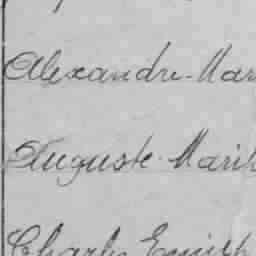 Alexandre-Mar
Auguste Marie
Charles